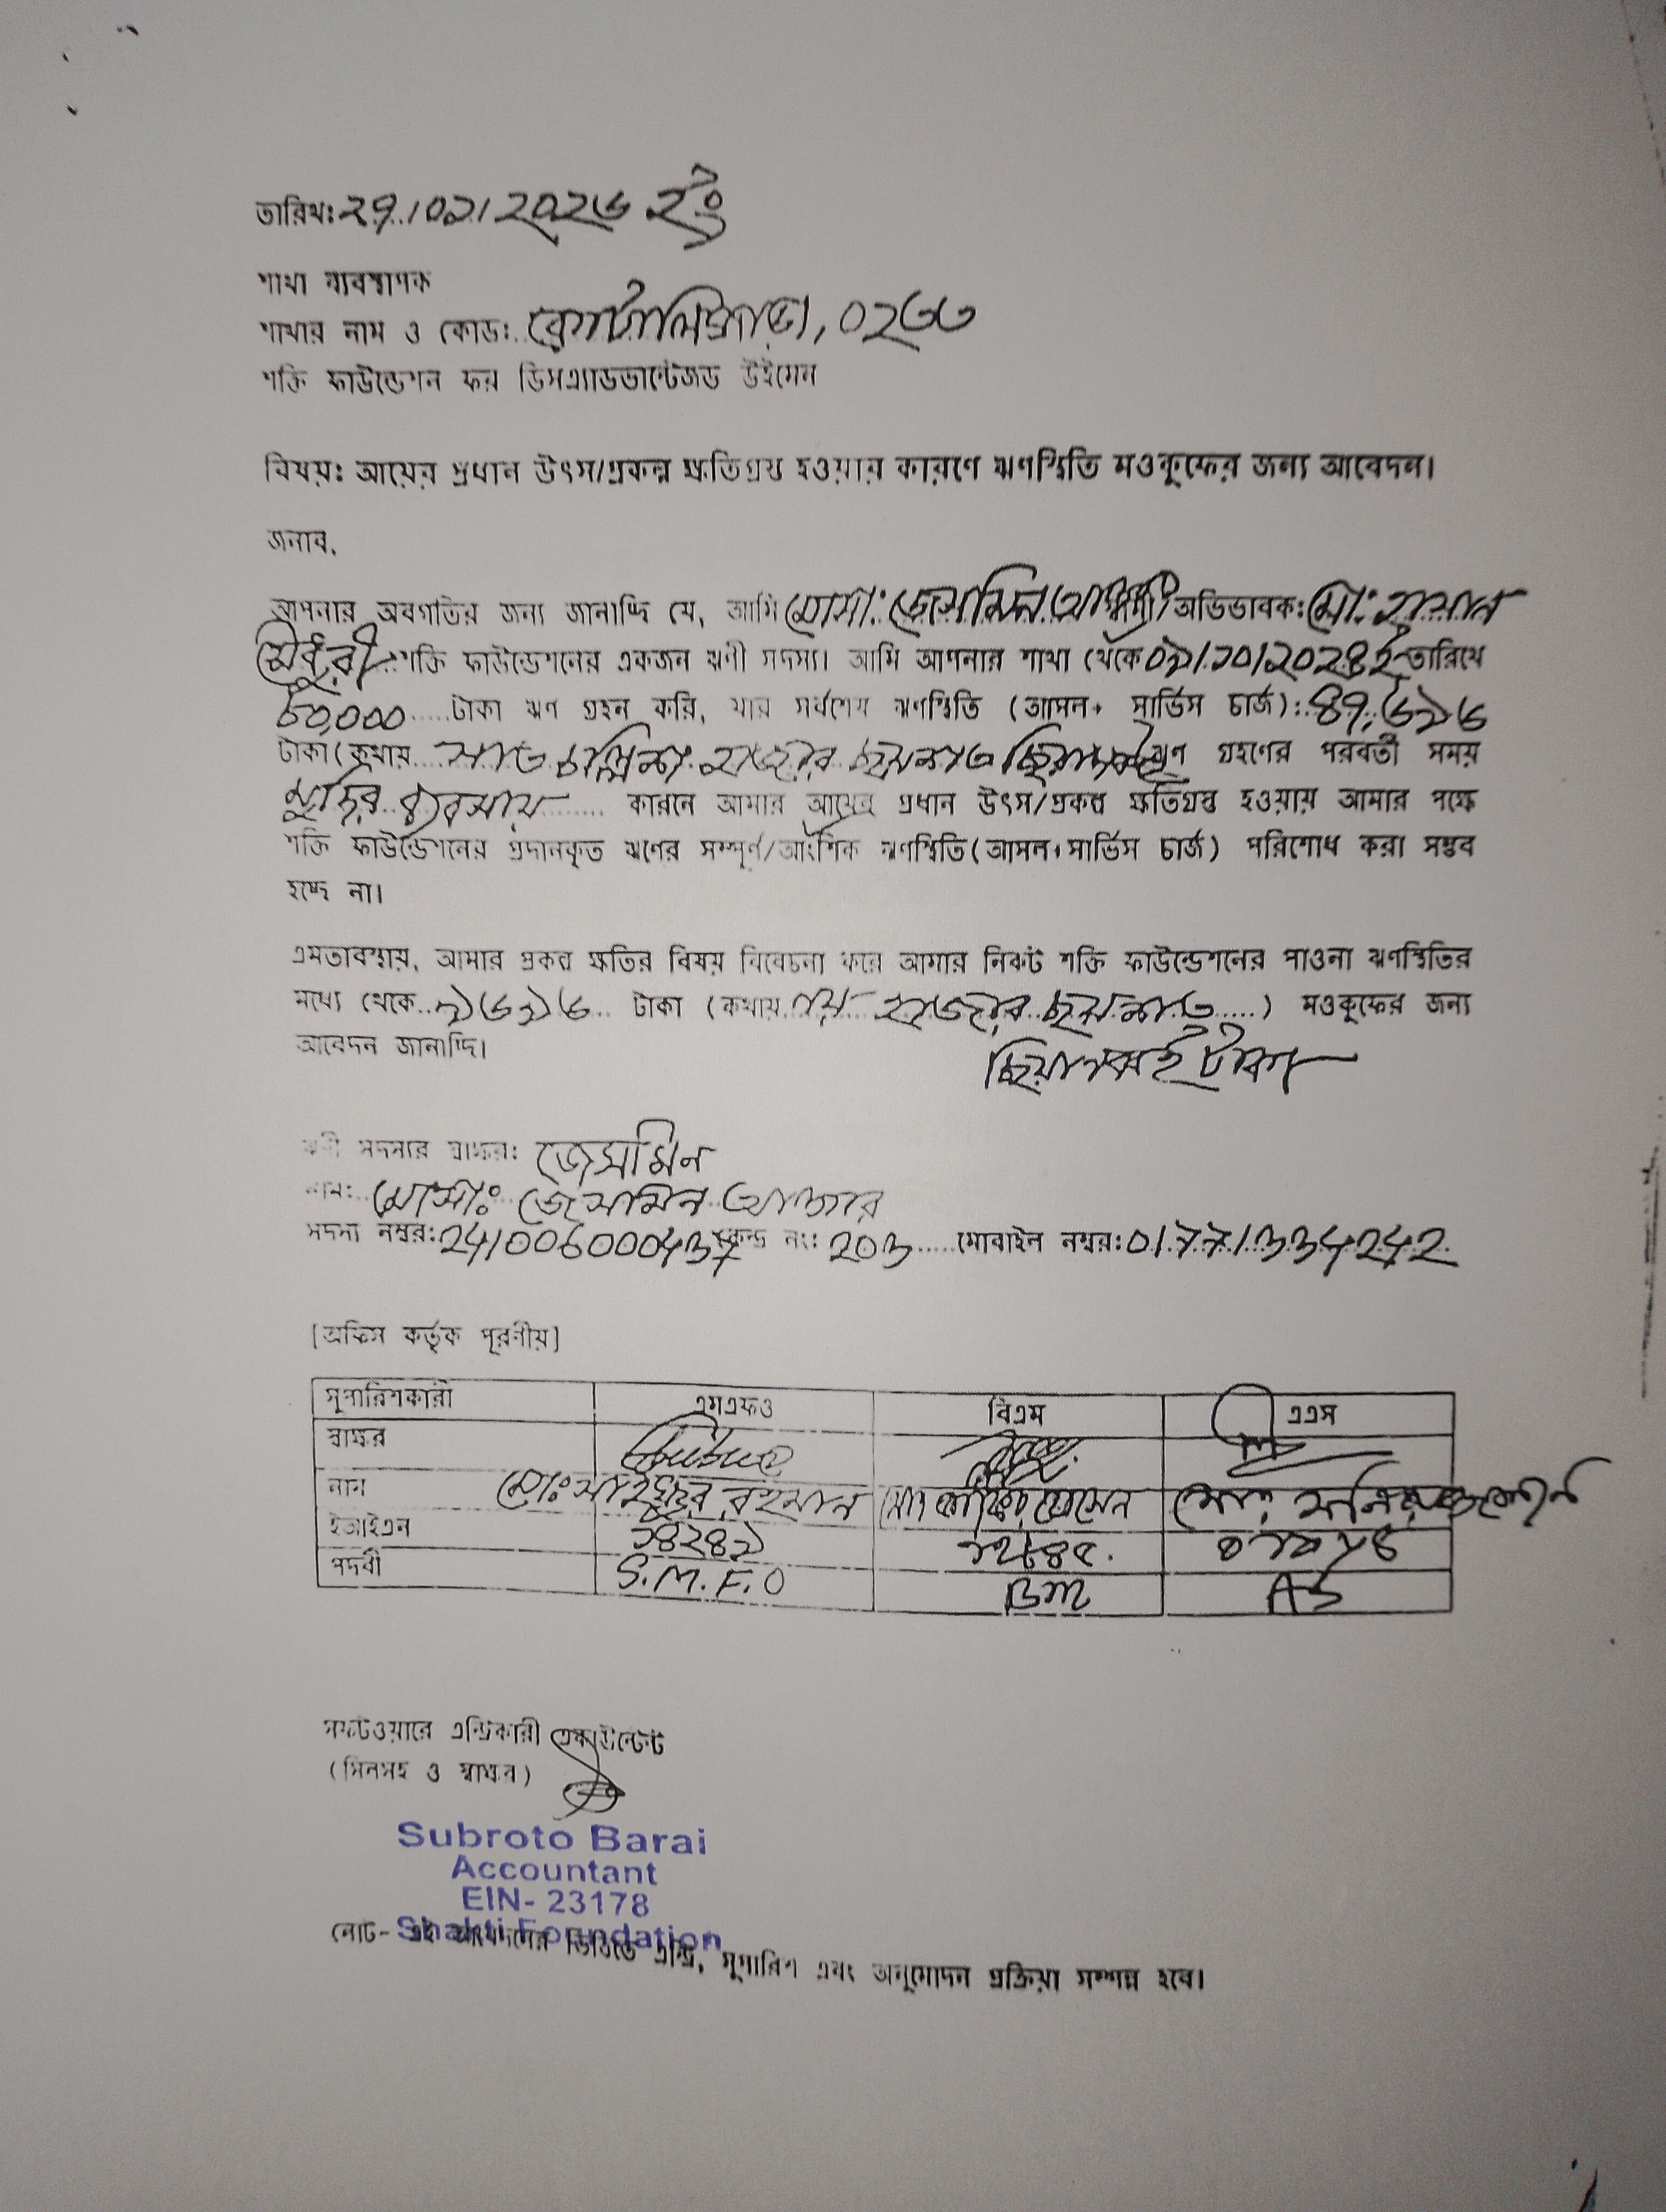 তারিখ: ২৭/০১/২০২৬ ইং
শাখা ব্যবস্থাপক
শাখার নাম ও কোড: কোটালিপাড়া, ০২৬৬
শক্তি ফাউন্ডেশন ফর ডিসএ্যাডভান্টেজড উইমেন
বিষয়: আয়ের প্রধান উৎস/প্রকল্প ক্ষতিগ্রস্ত হওয়ার কারণে ঋণস্থিতি মওকুফের জন্য আবেদন।
জনাব,
আপনার অবগতির জন্য জানাচ্ছি যে, আমি মোসা: জেসমিন আক্তার অভিভাবক: মো: হাসান
চৌধুরী শক্তি ফাউন্ডেশনের একজন ঋণী সদস্য। আমি আপনার শাখা থেকে ০৯/১০/২০২৪ ইং তারিখে
৮০,০০০ টাকা ঋণ গ্রহন করি, যার সর্বশেষ ঋণস্থিতি (আসল+ সার্ভিস চার্জ): ৪৭,৬৯৬
টাকা (কথায় সাত চল্লিশ হাজার ছয়শত ছিয়ানব্বই ঋণ গ্রহণের পরবর্তী সময়
মুদির ব্যবসায় কারনে আমার আয়ের প্রধান উৎস/প্রকল্প ক্ষতিগ্রস্ত হওয়ায় আমার পক্ষে
শক্তি ফাউন্ডেশনের প্রদানকৃত ঋণের সম্পূর্ণ/আংশিক ঋণস্থিতি (আসল+সার্ভিস চার্জ) পরিশোধ করা সম্ভব
হচ্ছে না।
এমতাবস্থায়, আমার প্রকল্প ক্ষতির বিষয় বিবেচনা করে আমার নিকট শক্তি ফাউন্ডেশনের পাওনা ঋণস্থিতির
মধ্যে থেকে ৯৬৯৬ টাকা (কথায় নয় হাজার ছয়শত ) মওকুফের জন্য
আবেদন জানাচ্ছি। ছিয়ানব্বই টাকা
ঋণী সদস্যর স্বাক্ষর: জেসমিন
নাম: মোসাঃ জেসমিন আক্তার
সদস্য নম্বর: 241006000437 কেন্দ্র নং: 203 মোবাইল নম্বর: 01771334242
[অফিস কর্তৃক পূরণীয়]
সুপারিশকারী এমএফও বিএম এএস
স্বাক্ষর
নাম মোঃ রহমান হোসেন মোঃ
ইআইএন ১৪২৪৯ ১২৮৪৫
পদবী S.M.F.O BM AS
সফটওয়ারে এন্ট্রিকারী একাউন্টেন্ট
(সিলসহ ও স্বাক্ষর)
Subroto Barai
Accountant
EIN- 23178
Shakti Foundation
নোট- এই আবেদনের ভিত্তিতে এন্ট্রি, সুপারিশ এবং অনুমোদন প্রক্রিয়া সম্পন্ন হবে।